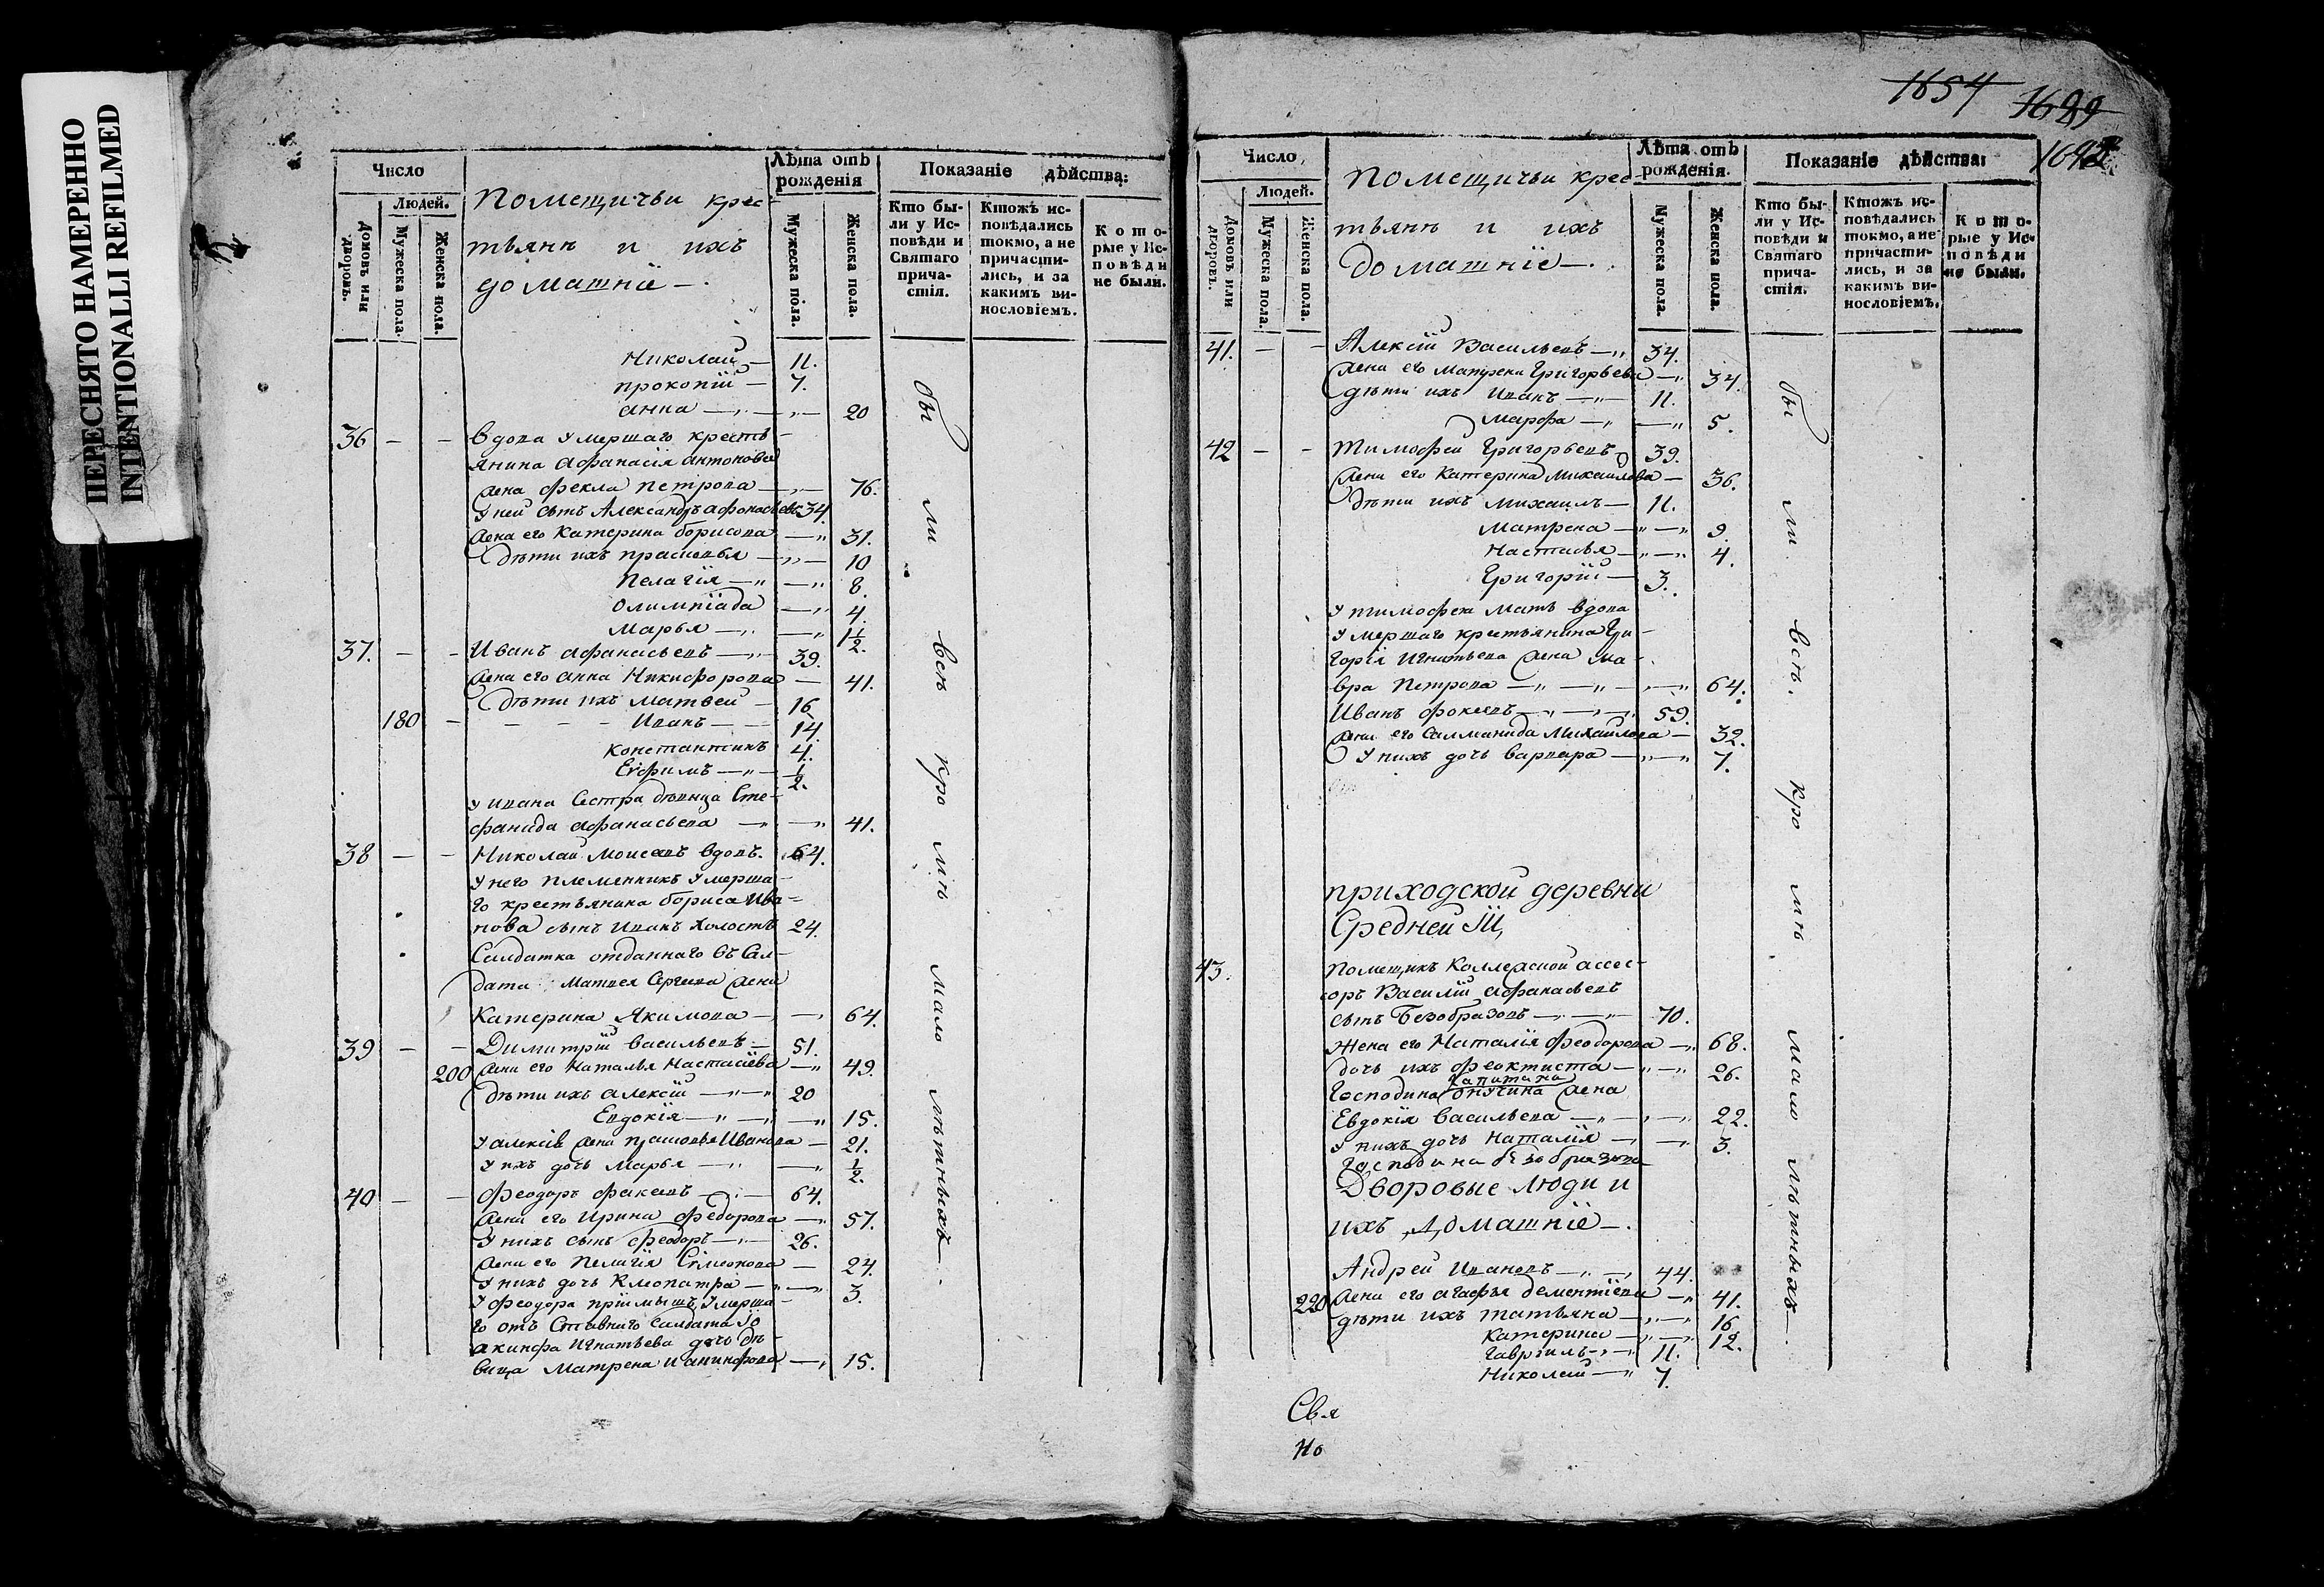 ПЕРЕСНЯТО НАМЕРЕННО
INTENTIONALLI REFILMED
Число
Людей.
Домовъ или дворовъ.
Мужеска пола.
Женска пола.
Помещичьи крес
тьянъ и ихъ
домашніе —.
Лѣта отъ рожденія
Мужеска пола.
Женска пола.
Показаніе дѣйства:
Кто бы-
ли у Ис-
повѣди и
Святаго
прича-
стія.
Ктожъ ис-
повѣдались
токмо, а не
причасти-
лись, и за
какимъ ви-
нословіемъ.
Кото-
рые у Ис-
повѣди
не были.
Николай — 11.
прокопій — 7.
анна — 20
36 — — вдова умершаго кресть-
янина афанасія антонова
жена фекла петрова — 76.
У ней сынъ Александръ афонасьевъ 34.
жена его Катерина борисова — 31.
дѣти ихъ прасковья — 10
Пелагія — 8.
олимпіада — 4.
Марья — 1 1/2.
37. — — Иванъ афанасьевъ — 39.
жена его анна Никифорова — 41.
дѣти ихъ Матвей — 16
180 — Иванъ — 14.
константинъ 4.
Ефимъ — 1/2.
у ивана Сестра дѣвица Сте-
фанида афанасьева — 41.
38 — — Николай Моисеевъ вдовъ. 64.
У него племенникъ умерша-
го крестьянина бориса Ива-
нова сынъ Иванъ холостъ 24.
Салдатка отданнаго въ Сал-
дати Матвея Сергеева жена
Катерина Якимова — 64.
39 — — Димитрій васильевъ — 51.
200 жена его Наталья Настасіева — 49.
дѣти ихъ алексій — 20
Евдокія — 15.
У алексія жена прасковья Иванова — 21.
У ихъ дочь Марья — 1/2.
40 — — Феодоръ факеевъ — 64.
жена его Ирина федорова — 57.
У нихъ сынъ феодоръ — 26.
жена его Пелагія Симеонова — 24.
У нихъ дочь Клеопатра — 3.
У феодора пріимышъ, умерша-
го отъ Ставнаго салдата Іо
акинфа Игнатьева дочь дѣ-
вица Матрена Иакинфова — 15.
бы ли всѣ кро мѣ мало лѣтныхъ —.
1654
1689
1692
Число
Людей.
Домовъ или дворовъ.
Мужеска пола.
Женска пола.
Помещичьи крес
тьянъ и ихъ
домашніе —.
Лѣта отъ рожденія.
Мужеска пола.
Женска пола.
Показаніе дѣйства:
Кто бы-
ли у Ис-
повѣди и
Святаго
прича-
стія.
Ктожъ ис-
повѣдались
токмо, а не
причасти-
лись, и за
какимъ ви-
нословіемъ.
Кото-
рые у Ис-
повѣди
не были.
41. — — Алексій Васильевъ — 34.
жена его Матрена Григорьева — 34.
дѣти ихъ Иванъ — 11.
Марфа — 5.
42 — — Тимофей Григорьевъ 39.
жена его Катерина Михаилова — 36.
дѣти ихъ Михаилъ — 11.
Матрена — 9.
Настасья — 4.
Григорій — 3.
У тимофея Мать вдова
умершаго крестьянина Гри-
горія Игнатьева жена ма-
вра Петрова — 64.
Иванъ фокеевъ — 59.
жена его Саломанида Михаилова — 32.
У нихъ дочь варвара — 7.
приходской деревни
Средней М,
43. Помещикъ Коллежской ассес-
соръ Василій афанасьевъ
сынъ Безобразовъ — 70.
Жена его Наталія Феодорова — 68.
дочь ихъ феоктиста — 26.
капитана
Господина жена
Евдокія васильева — 22.
У нихъ дочь Наталія — 3.
Господина безобразова
Дворовые люди и
ихъ домашніе —.
Андрей Ивановъ — 44.
220 жена его агафья дементіева — 41.
дѣти ихъ татьяна — 16
катерина — 12.
Гавріилъ — 11.
Николай — 7.
бы ли всѣ, кро мѣ мало лѣтныхъ —.
Свя
но